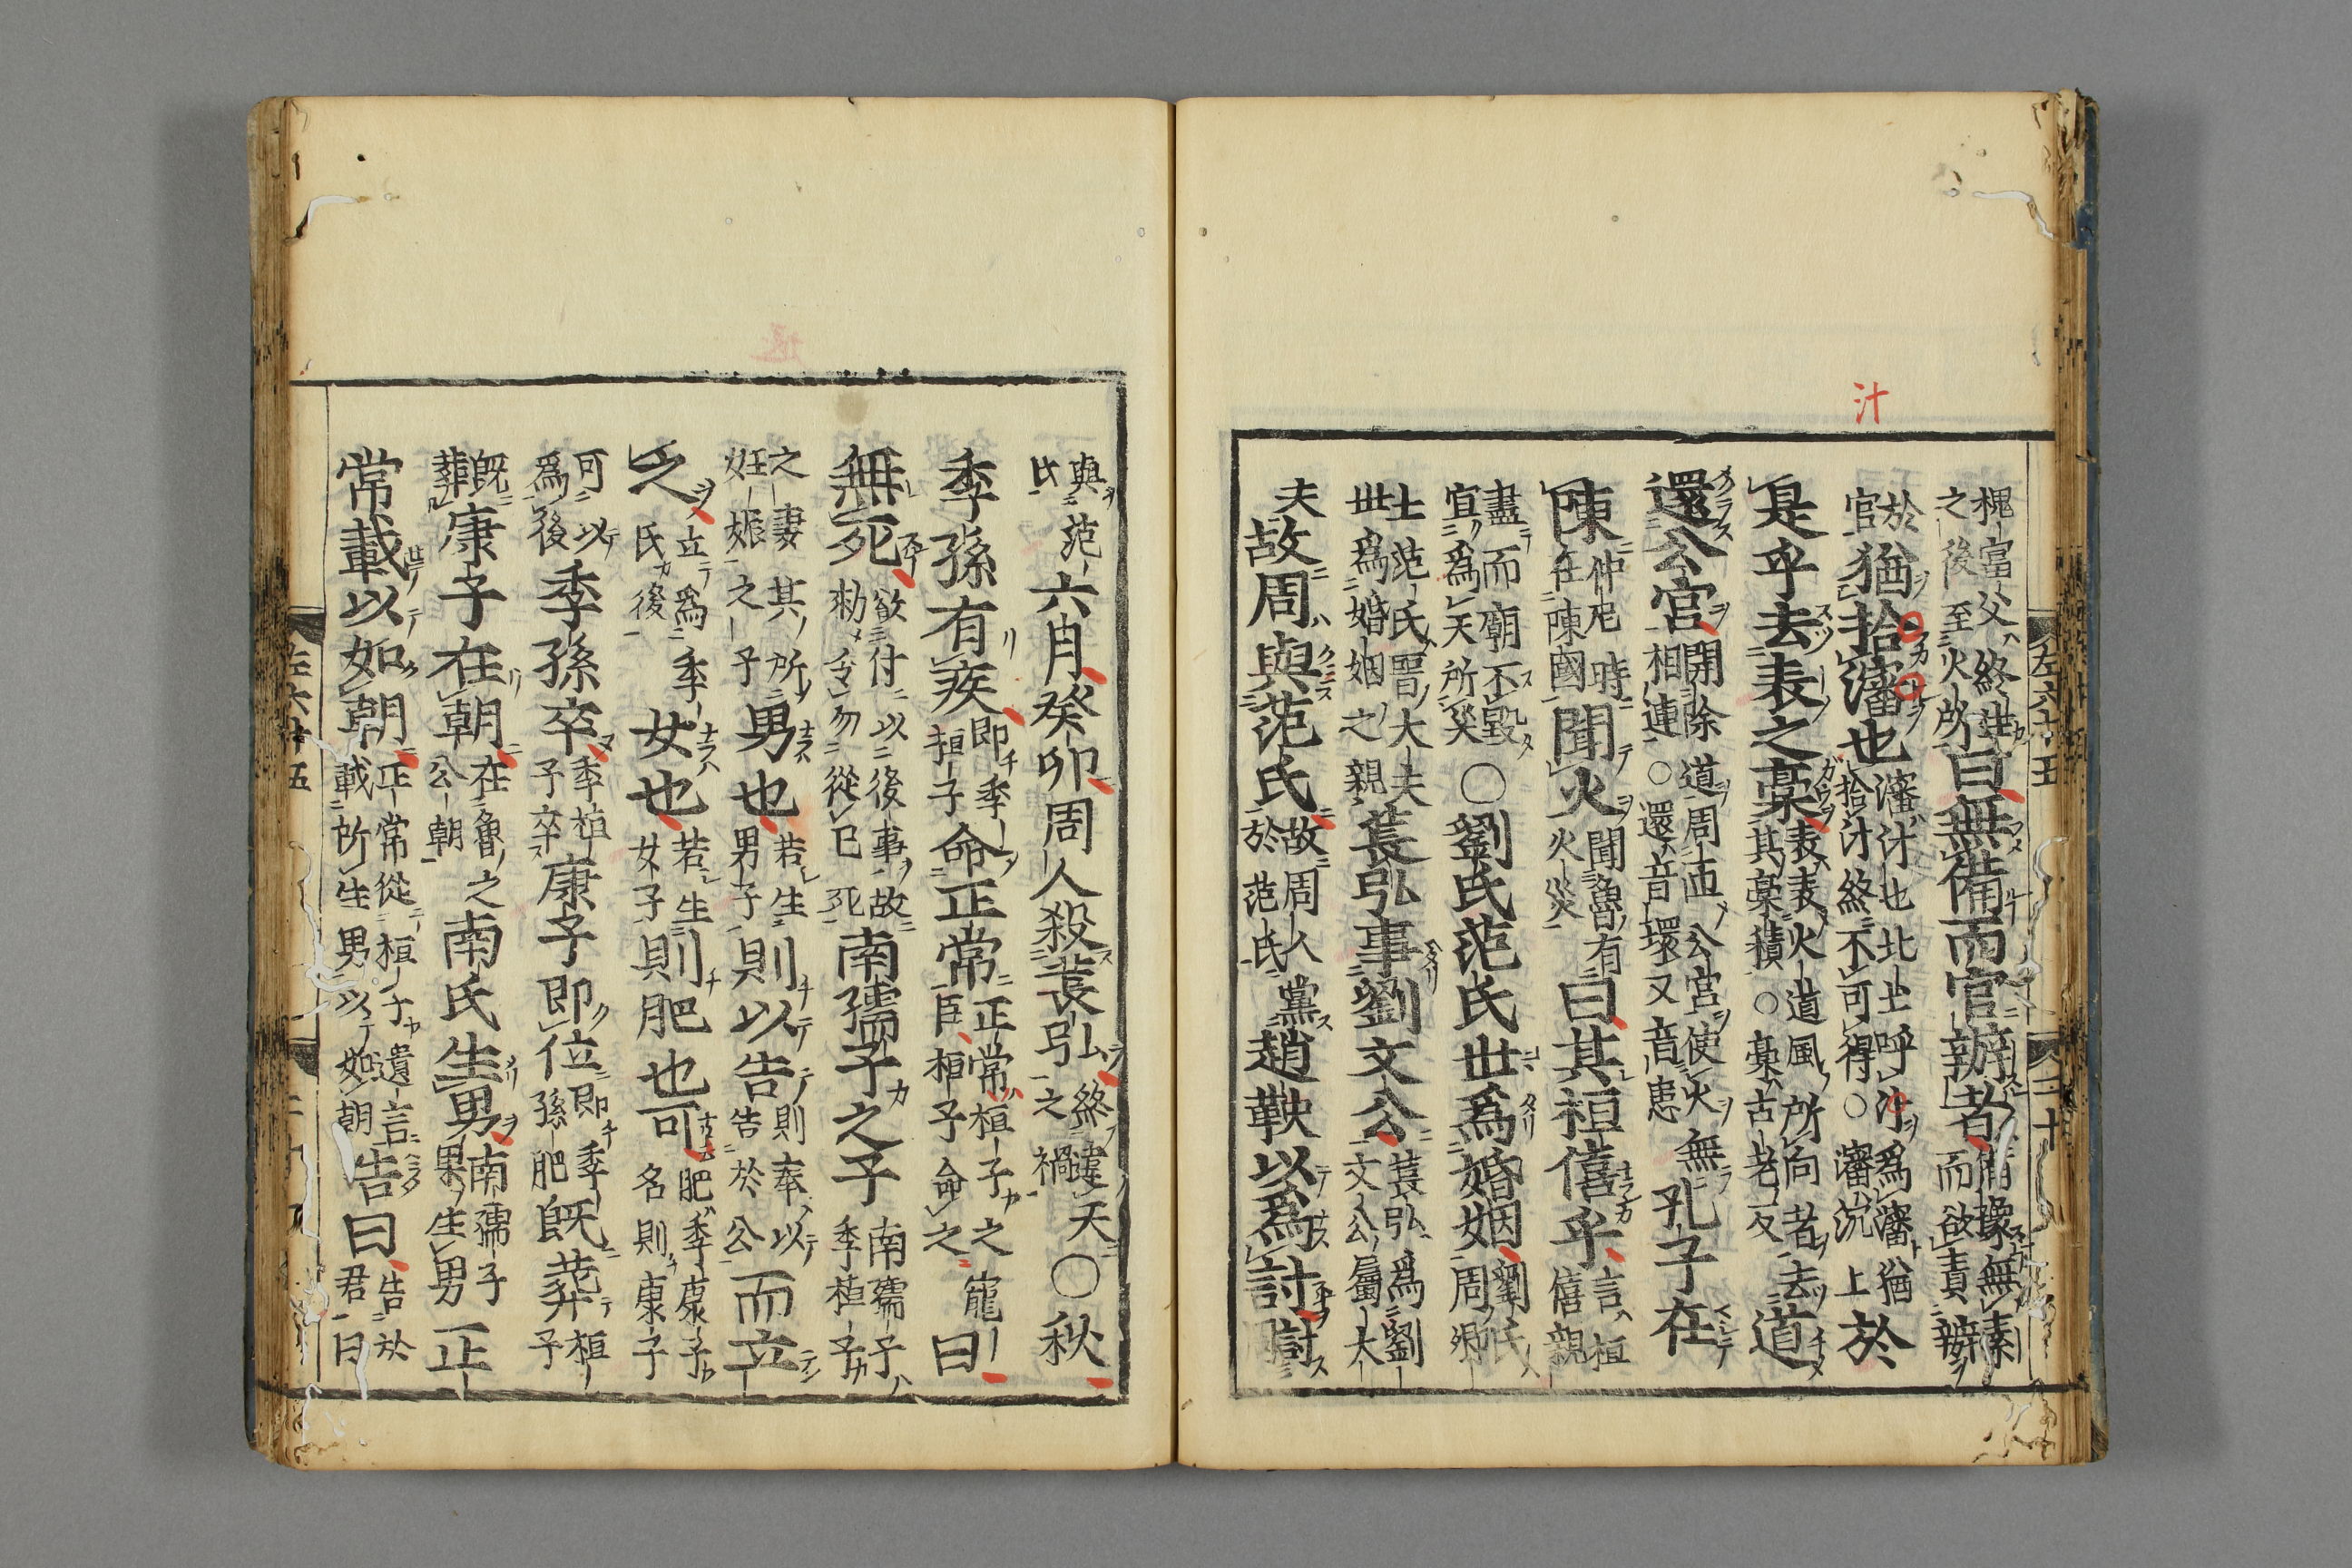 汁
槐富父終生
之後至火所曰無備而官辦者備豫無素
而欲責辦
於
官猶拾瀋也瀋汁也北土呼汁爲瀋猶
拾汁終不可得○瀋沉上於
是乎去表之槀表表火道風所向者去
其槀積○槀古老反道
還公宮開除道周匝公宮使火無
相連○還音環又音患孔子在
陳仲尼時
在陳國聞火聞魯有
火災曰其桓僖乎言桓
僖親
盡而廟不毀
宜爲天所災○劉氏范氏世爲婚姻劉氏
周卿
士范氏晉大夫
世爲婚姻之親萇弘事劉文公萇弘爲劉
文公屬大
夫故周與范氏故周人黨
於范氏趙鞅以爲討討
左六十五
二十
與范
氏六月癸卯周人殺萇弘終違天
之禍○秋
季孫有疾即季
桓子命正常正常桓子之寵
臣桓子命之曰
無死欲付以後事故
勑令勿從已死南孺子之子南孺子
季桓子
之妻其所
妊娠之子男也若生
男子則以告則奉以
告於公而立
之立爲季
氏後女也若生
女子則肥也可肥季康子
名則康子
可以
爲後季孫卒季桓
子卒康子即位即季
孫肥既葬桓
子
既
葬康子在朝在魯之
公朝南氏生男南孺子
果生男正
常載以如朝正常從桓子遺言
載所生男以如朝告曰告於
君曰
左六十五